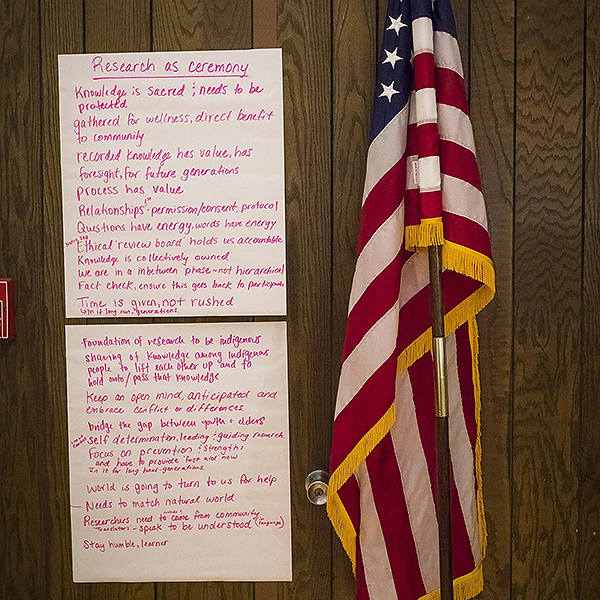 Research as ceremony
Knowledge is sacred ; needs to be
protected
gathered for wellness, direct benefit
to community
recorded knowledge has value, has
foresight, for future generations
process has value
Relationships - permission/consent, protocol
Qustions have energy, words have energy
Ethical 'review board' holds us accountable
Knowledge is collectively owned
We are in a inbetween phase - not hierarchical
Fact check, ensure this gets back to participants
Time is given, not rushed
in it long run, generations.
Foundation of research to be indigenous
sharing of knowledge among indigenous
people to lift each other up and to
hold onto/pass that knowledge
Keep an open mind, anticipated and
embrace conflict or differences
bridge the gap between youth + elders
self determination, leading ; guiding research
Focus on prevention ; strengths
and have to provide 'first aid' now
In it for long haul - generations
World is going to turn to us for help
Needs to match natural world
Researchers need to come from community
Translators - speak to be understood (language)
Stay humble, learner